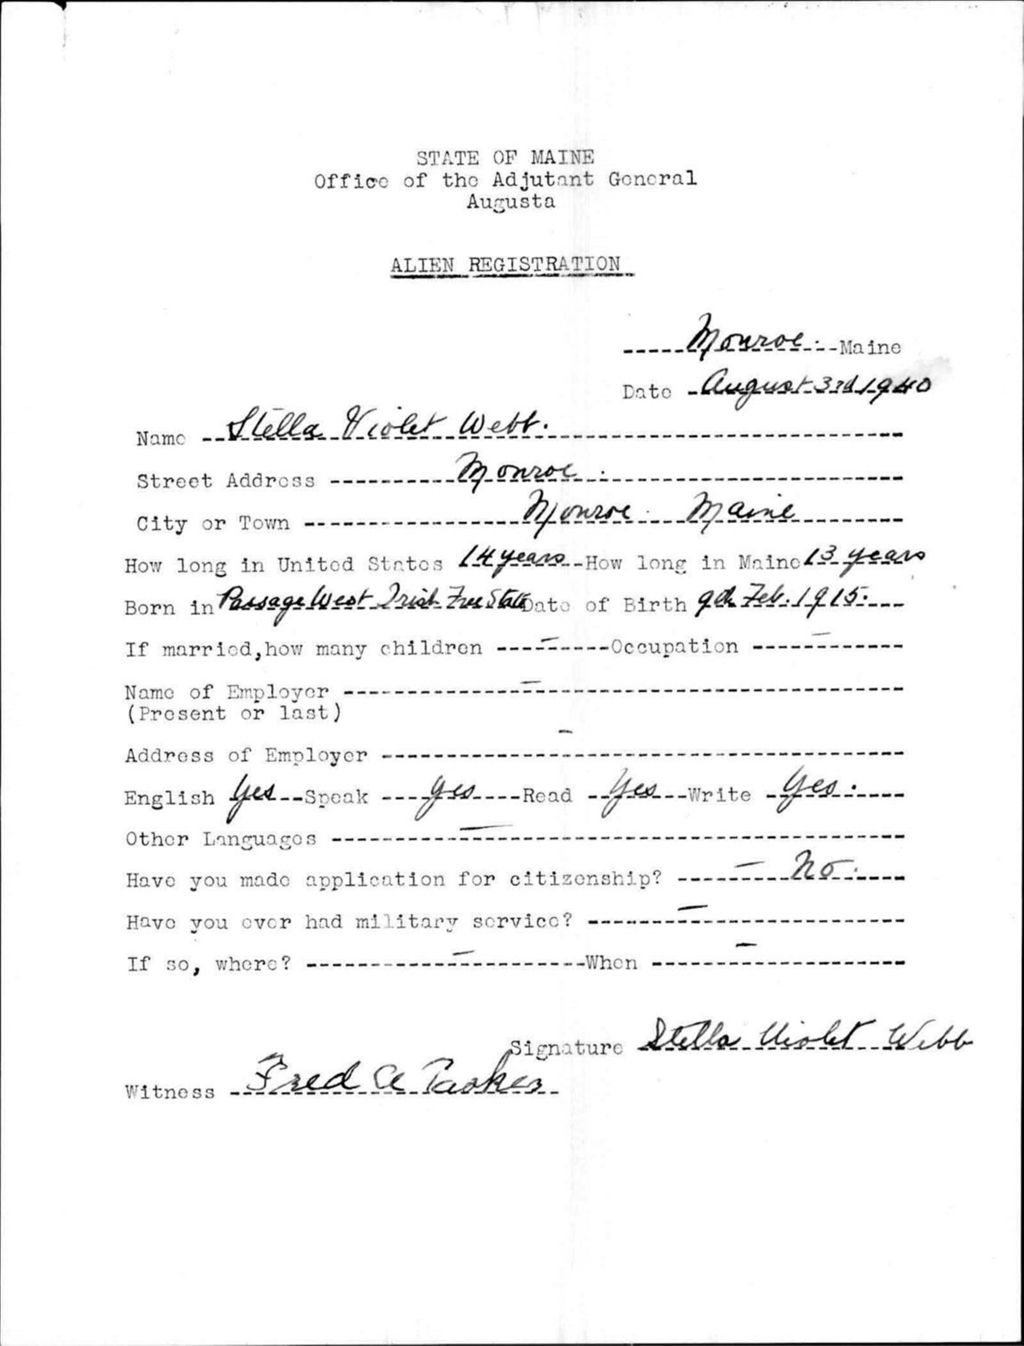 STATE OF MAINE
Office of the Adjutant General
Augusta
ALIEN REGISTRATION
Monroe. Maine
Date August 3rd 1940
Name Stella Violet Webb.
Street Address Monroe.
City or Town Monroe. Maine
How long in United States 14 years How long in Maine 13 years
Born in Passage West Irish Free State Date of Birth 9th Feb. 1915.
If married, how many children — Occupation —
Name of Employer —
(Present or last)
Address of Employer —
English Yes Speak yes Read Yes Write Yes.
Other Languages —
Have you made application for citizenship? — No.
Have you ever had military service? —
If so, where? — When —
Signature Stella Violet Webb
Witness Fred A Parker